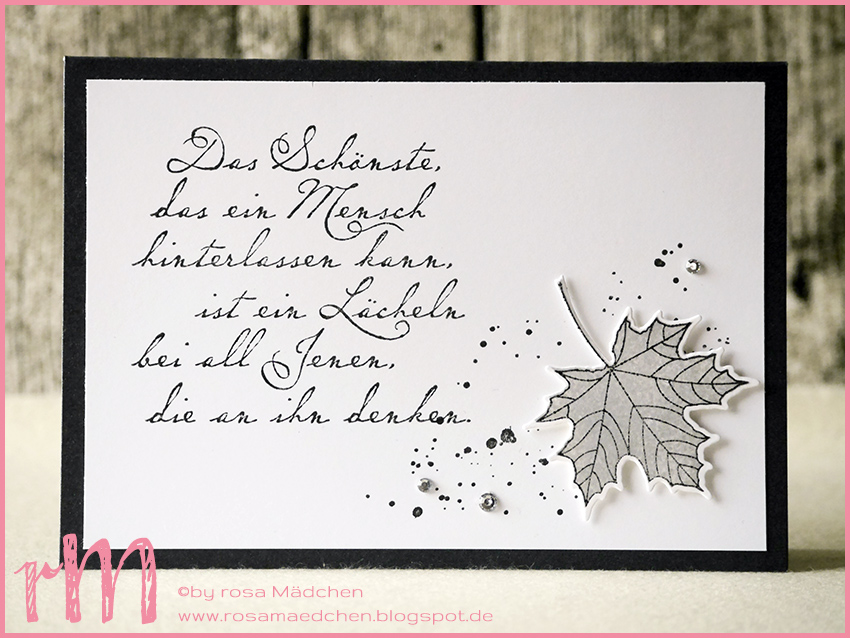 Das Schönste,
das ein Mensch
hinterlassen kann,
ist ein Lächeln
bei all Jenen,
die an ihn denken.
rM
©by rosa Mädchen
www.rosamaedchen.blogspot.de